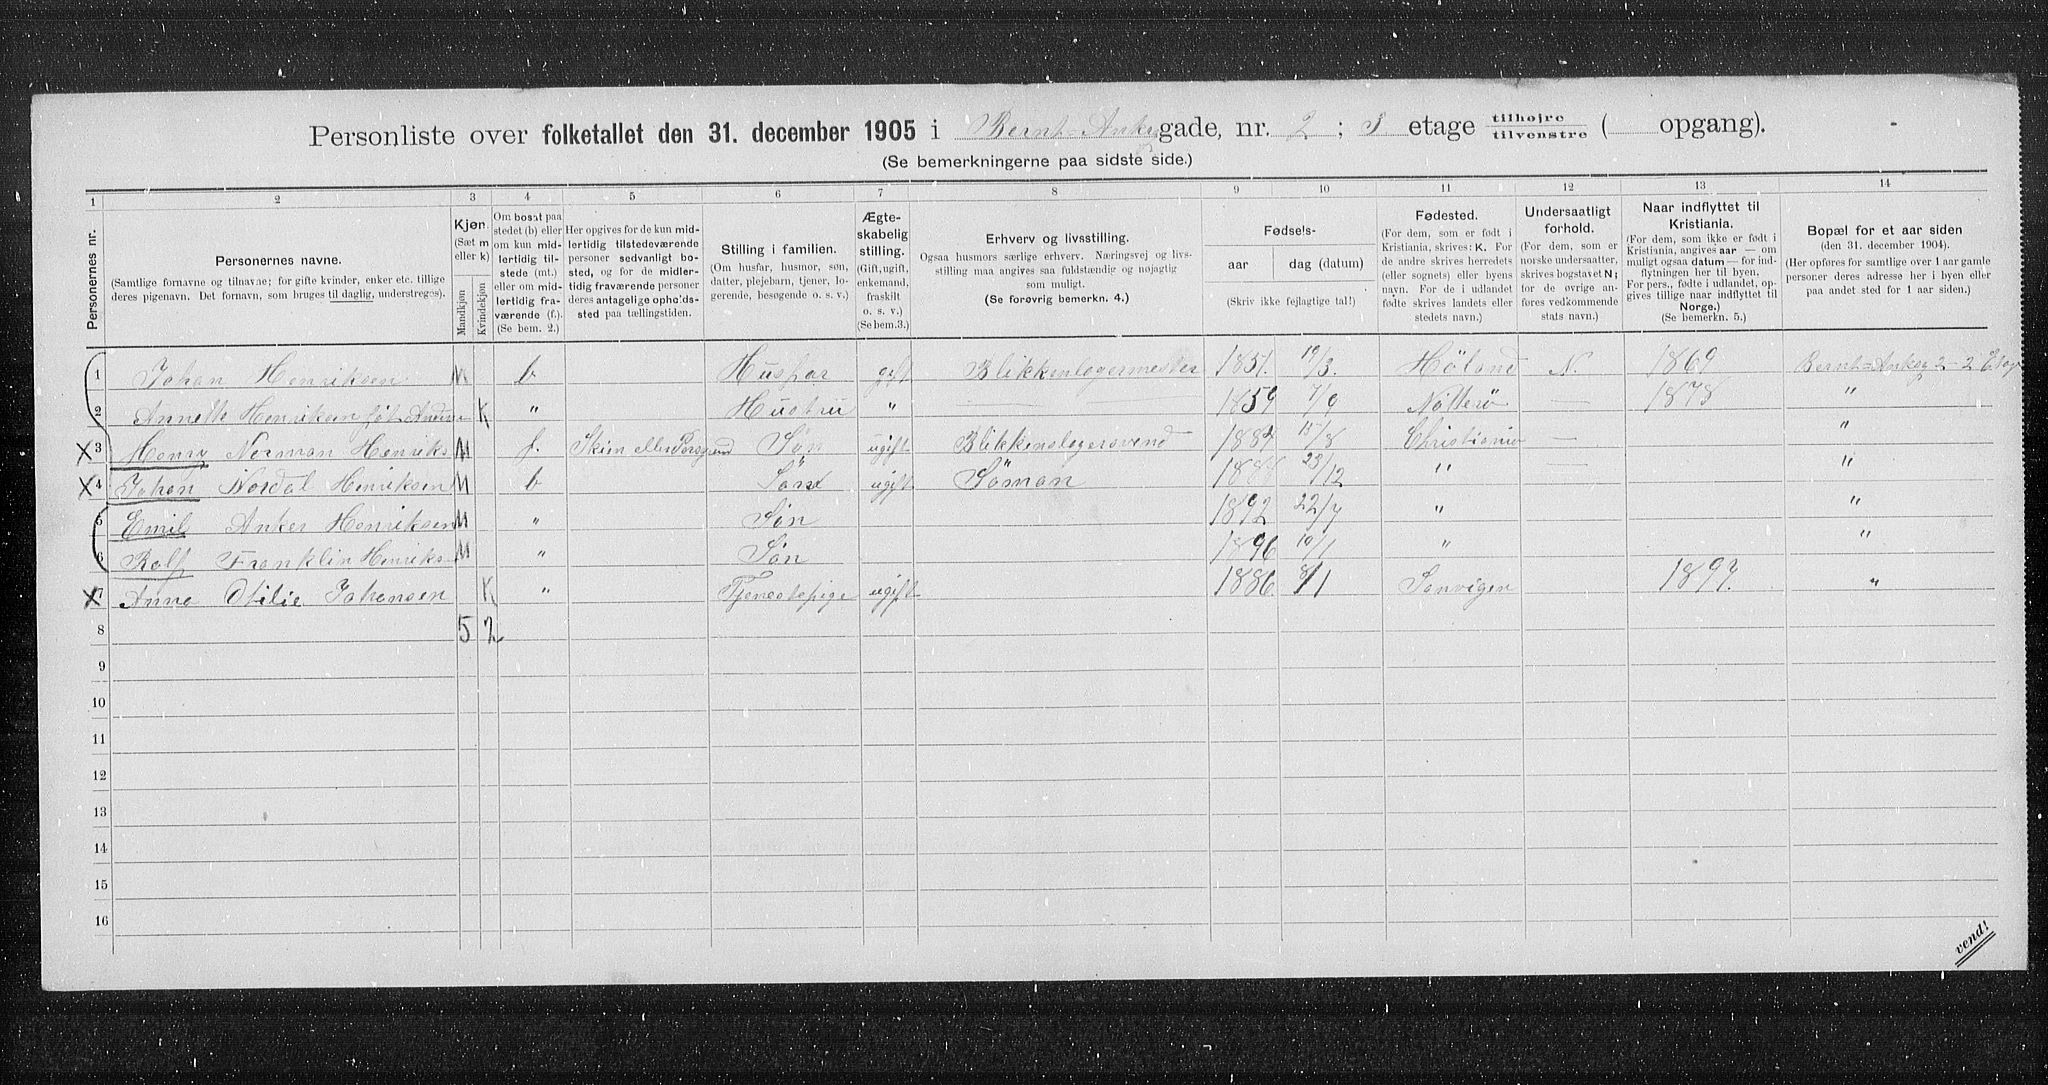 Personliste over folketallet den 31. december 1905 i Bernt-Ankersgade, nr. 2; etage tilhøjre tilvenstre ( opgang).
(Se bemerkningerne paa sidste side.)
1 2 3 4 5 6 7 8 9 10 11 12 13 14
Personernes nr.
Personernes navne.
(Samtlige fornavne og tilnavne; for gifte kvinder, enker etc. tillige
deres pigenavn. Det fornavn, som bruges til daglig, understreges).
Kjøn.
(Sæt m
eller k)
Mandkjøn
Kvindekjøn
Om bosat paa
stedet (b) eller
om kun mid-
lertidig til-
stede (mt.)
eller om mid-
lertidig fra-
værende (f.).
(Se bem. 2.)
Her opgives for de kun mid-
lertidig tilstedeværende
personer sedvanlig bo-
sted, og for de midler-
tidig fraværende personer
des antagelige opholds-
sted paa tællingstiden.
Stilling i familien.
(Om husfar, husmor, søn,
datter, plejebarn, tjener, lo-
gerende, besøgende o. s. v.)
Ægte-
skabelig
stilling.
(Gift, ugift,
enkemand,
fraskilt
o. s. v.)
(Se bem.3.)
Erhverv og livsstilling.
Ogsaa husmors særlige erhverv. Næringsvej og livs-
stilling maa angives saa fuldstændig og nøjagtig
som muligt.
(Se forøvrig bemerkn. 4.)
Fødsels-
aar dag (datum)
(Skriv ikke fejlagtige tal!)
Fødested.
(For dem, som er født i
Kristiania, skrives: K. For
de andre skrives herredets
(eller sognets) eller byens
navn. For de i udlandet
fødte skrives landets eller
stedets navn.)
Undersaatligt
forhold.
(For dem, som er
norske undersaatter,
skrives bogstavet N;
for de øvrige an-
føres vedkommende
stats navn.)
Naar indflyttet til
Kristiania.
(For dem, som ikke er født i
Kristiania, angives aar — om
mulig ogsaa datum — for ind-
flytningen her til byen.
For pers., fødte i udlandet, op-
gives tillige naar indflyttet til
Norge.)
(Se bemerkn. 5.)
Bopæl for et aar siden
(den 31. december 1904).
(Her opføres for samtlige over 1 aar gamle
personer deres adresse her i byen eller
paa andet sted for 1 aar siden.)
1 Johan Henriksen M b Husfar gift Blikkenslagermester 1851. 19/3. Höland N. 1869 Bernt-Ankeg 2 - 2 Etag
2 Annette Henriksen föt K " Hustru " — 1859 7/9 Nötterö — 1878 "
X 3 Henry Nerman Henriks M f. Skien eller Porsgrund Søn ugift Blikkenslagersvend 1882 15/8 Christiania — "
X 4 Johan Nordal Henriksen M b Søn ugift Söman 23/12 " — "
5 Emil Anker Henriksen M " Søn 1892 22/7 " "
6 Rolf Franklin Henriks M " Søn 1896 19/1 " "
X 7 Anna Otilie Johansen K " Tjenestepige ugift 1886 8/1 Sanvigen 1897. "
8 5 2
9
10
11
12
13
14
15
16
vend!